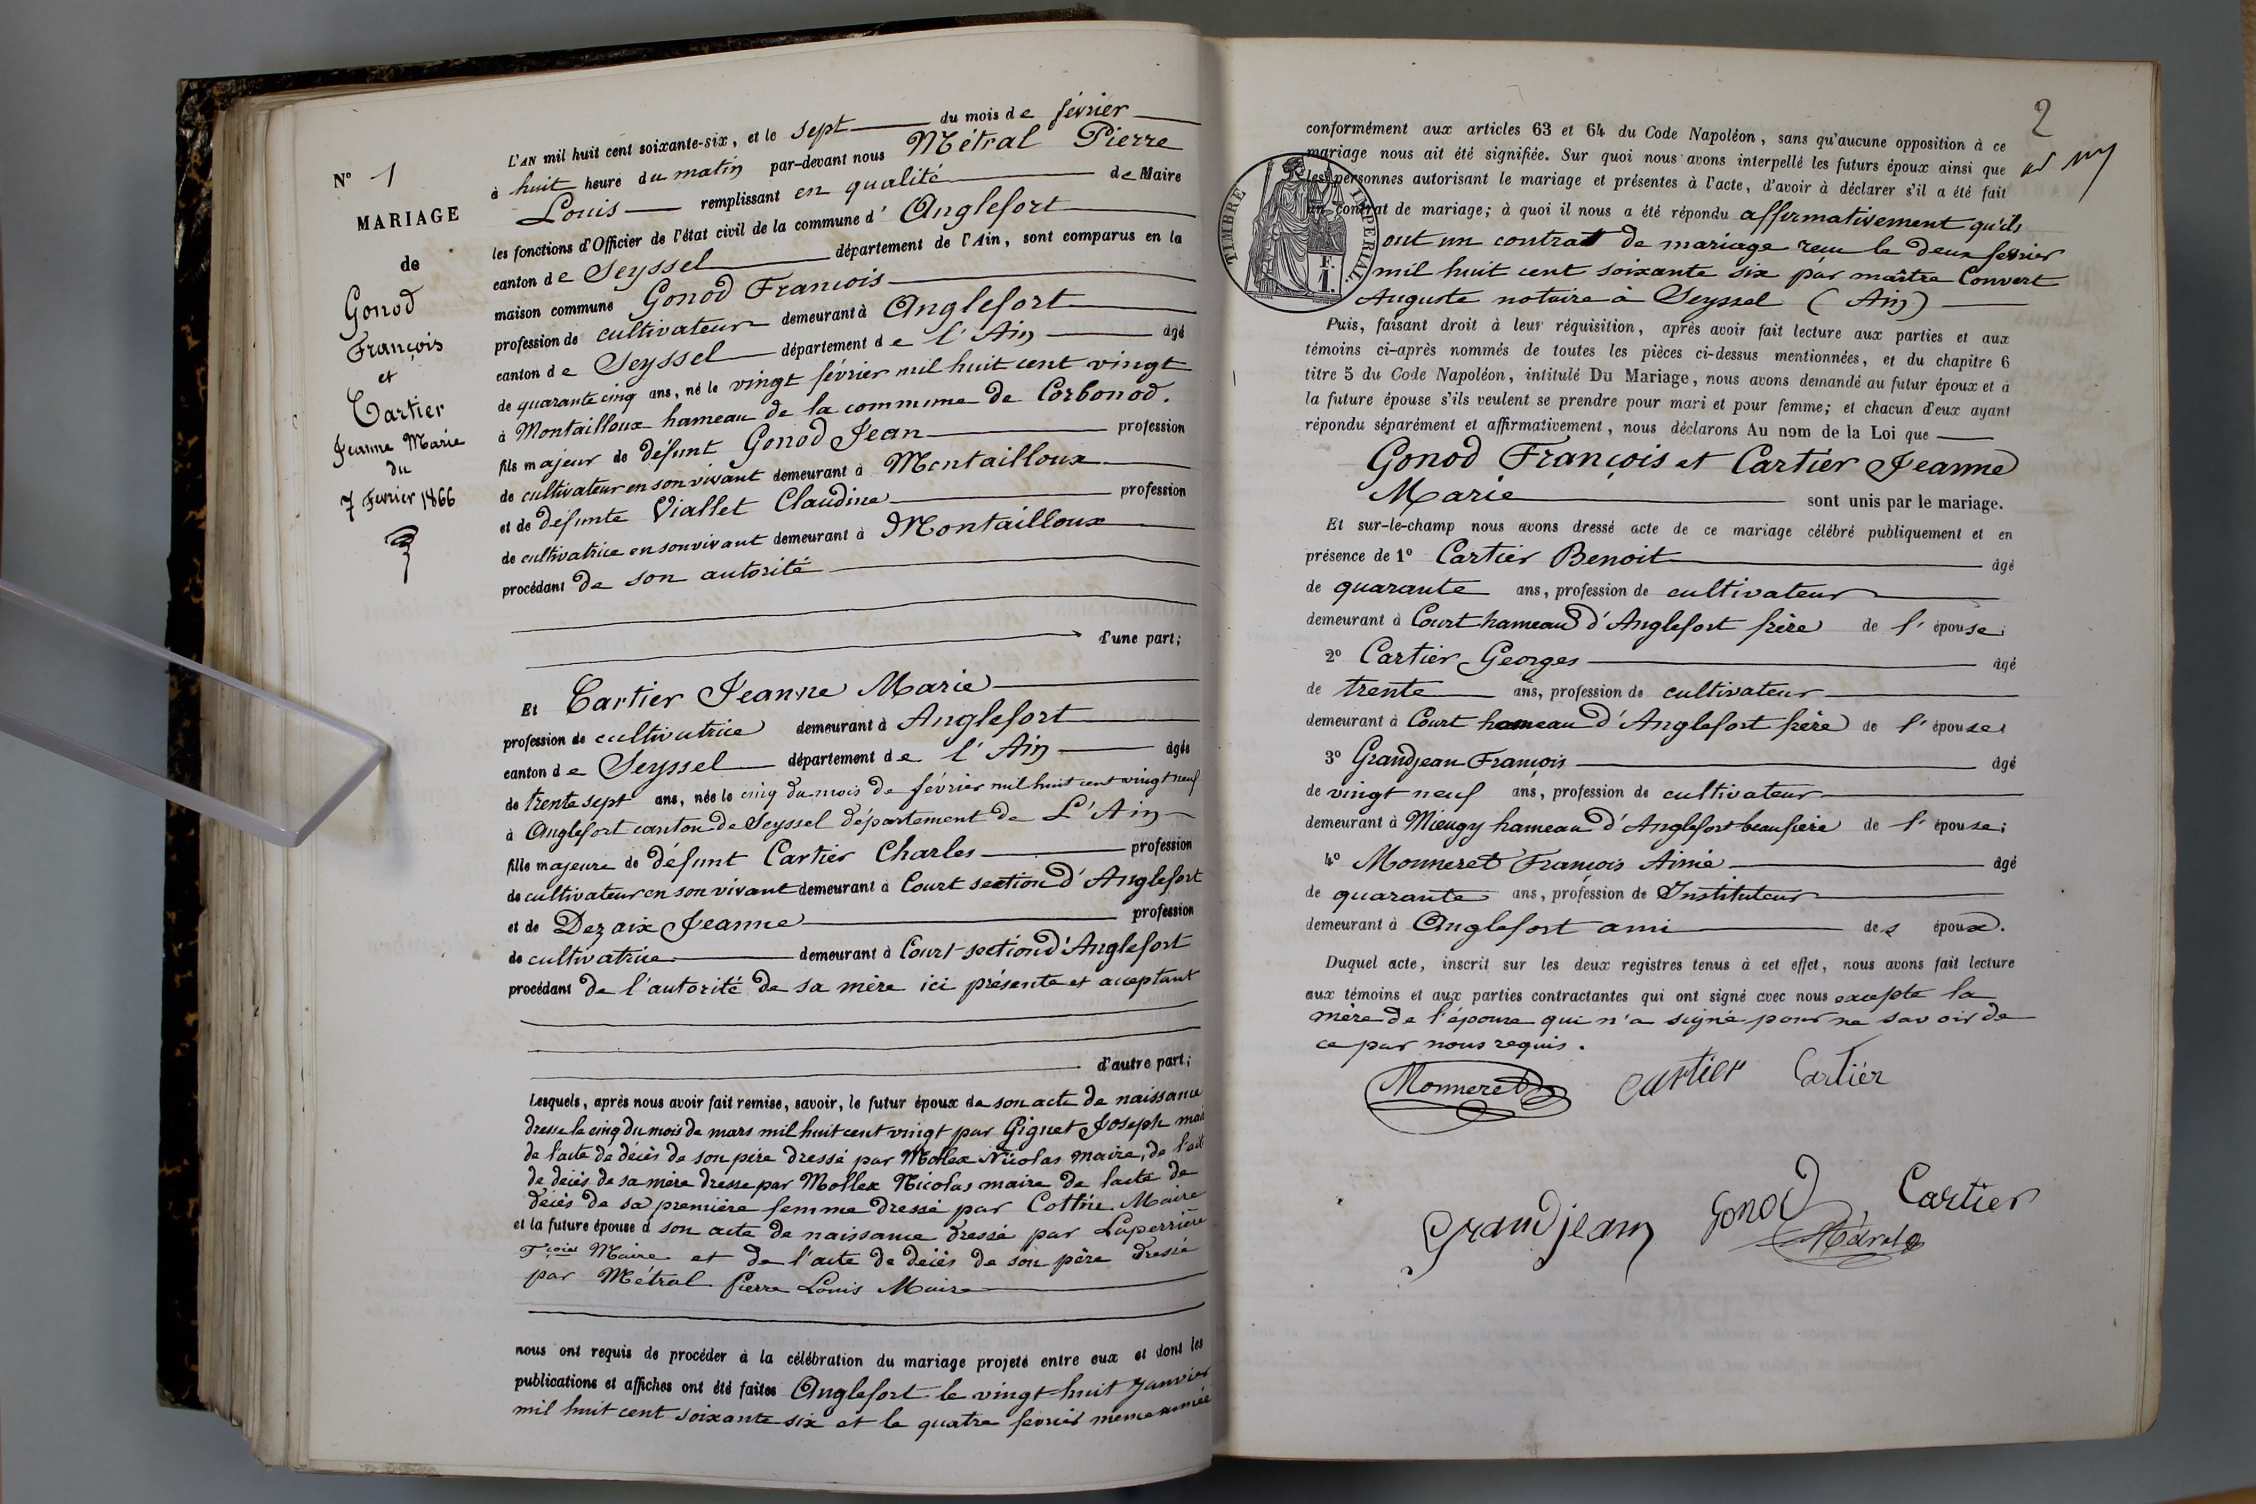 N° 1
MARIAGE
de
Gonod
François
et
Cartier
Jeanne Marie
du
7 Fevrier 1866
L'AN mil huit cent soixante-six, et le sept du mois de février
à huit heure du matin par-devant nous Métral Pierre
Louis remplissant en qualité de Maire
les fonctions d'Officier de l'état civil de la commune d' Anglefort
canton de Seyssel département de l'Ain, sont comparus en la
maison commune Gonod Francois
profession de cultivateur demeurant à Anglefort
canton de Seyssel département de l'Ain âgé
de quarante cinq ans, né le vingt février mil huit cent vingt
à Montailloux hameau de la commune de Corbonod.
fils majeur de défunt Gonod Jean profession
de cultivateur en son vivant demeurant à Montailloux
et de défunte Viallet Claudine profession
de cultivatrice en son vivant demeurant à Montailloux
procédant de son autorité
d'une part;
Et Cartier Jeanne Marie
profession de cultivatrice demeurant à Anglefort
canton de Seyssel département de l'Ain âgée
de trente sept ans, née le cinq du mois de février mil huit cent vingt neuf
à Anglefort canton de Seyssel département de L'Ain
fille majeure de défunt Cartier Charles profession
de cultivateur en son vivant demeurant à Court section d'Anglefort
et de Dezaix Jeanne profession
de cultivatrice demeurant à Court section d'Anglefort
procédant de l'autorité de sa mère ici présente et acceptant
d'autre part;
Lesquels, après nous avoir fait remise, savoir, le futur époux de son acte de naissance
dressé le cinq du mois de mars mil huit cent vingt par Giguet Joseph
de l'acte de décès de son père dressé par Mollex Nicolas maire, de l'acte
de décès de sa mère dressé par Mollex Nicolas maire de l'acte de
décès de sa première femme dressé par Cottin Maire
et la future épouse d son acte de naissance dressé par Laperrière
Fçois Maire et de l'acte de décès de son père dressé
par Métral Pierre Louis Maire
nous ont requis de procéder à la célébration du mariage projeté entre eux et dont les
publications et affiches ont été faites Anglefort le vingt huit Janvier
mil huit cent soixante six et le quatre février meme année
2
conformément aux articles 63 et 64 du Code Napoléon, sans qu'aucune opposition à ce
mariage nous ait été signifiée. Sur quoi nous avons interpellé les futurs époux ainsi que
les personnes autorisant le mariage et présentes à l'acte, d'avoir à déclarer s'il a été fait
un contrat de mariage; à quoi il nous a été répondu affirmativement qu'ils
ont un contrat de mariage recu le deux fevrier
mil huit cent soixante six par maître Convert
Auguste notaire à Seyssel (Ain)
TIMBRE IMPERIAL.
F.
1.
Puis, faisant droit à leur réquisition, après avoir fait lecture aux parties et aux
témoins ci-après nommés de toutes les pièces ci-dessus mentionnées, et du chapitre 6
titre 5 du Code Napoléon, intitulé Du Mariage, nous avons demandé au futur époux et à
la future épouse s'ils veulent se prendre pour mari et pour femme; et chacun d'eux ayant
répondu séparément et affirmativement, nous déclarons Au nom de la Loi que
Gonod François et Cartier Jeanne
Marie sont unis par le mariage.
Et sur-le-champ nous avons dressé acte de ce mariage célébré publiquement et en
présence de 1° Cartier Benoit âgé
de quarante ans, profession de cultivateur
demeurant à Court hameau d'Anglefort frère de l'épouse;
2° Cartier Georges âgé
de trente ans, profession de cultivateur
demeurant à Court hameau d'Anglefort frère de l'épouse;
3° Grandjean François âgé
de vingt neuf ans, profession de cultivateur
demeurant à Mieugy hameau d'Anglefort beau frère de l'épouse;
4° Monneret François Aimé âgé
de quarante ans, profession de Instituteur
demeurant à Anglefort ami des époux.
Duquel acte, inscrit sur les deux registres tenus à cet effet, nous avons fait lecture
aux témoins et aux parties contractantes qui ont signé avec nous excepté la
mère de l'épouse qui n'a signé pour ne savoir de
ce par nous requis.
Monneret Cartier Cartier
Grandjean Gonod Cartier
Métral